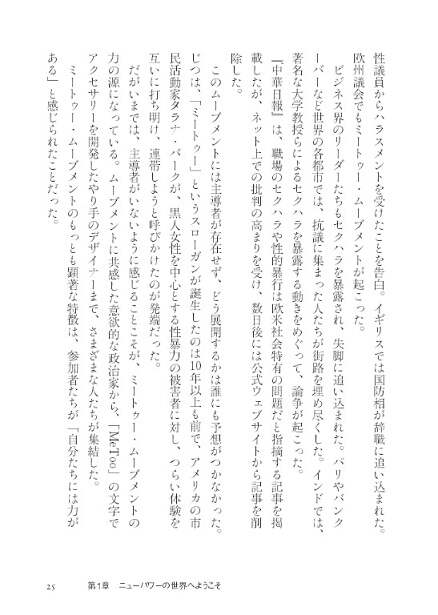 性議員からハラスメントを受けたことを告白。イギリスでは国防相が辞職に追い込まれた。
欧州議会でもミートゥー・ムーブメントが起こった。
ビジネス界のリーダーたちもセクハラを暴露され、失脚に追い込まれた。パリやバンク
ーバーなど世界の各都市では、抗議に集まった人たちが街路を埋め尽くした。インドでは、
著名な大学教授らによるセクハラを暴露する動きをめぐって、論争が起こった。
『中華日報』は、職場のセクハラや性的暴行は欧米社会特有の問題だと指摘する記事を掲
載したが、ネット上での批判の高まりを受け、数日後には公式ウェブサイトから記事を削
除した。
このムーブメントには主導者が存在せず、どう展開するかは誰にも予想がつかなかった。
じつは、「ミートゥー」というスローガンが誕生したのは10年以上も前で、アメリカの市
民活動家タラナ・バークが、黒人女性を中心とする性暴力の被害者に対し、つらい体験を
互いに打ち明け、連帯しようと呼びかけたのが発端だった。
だがいまでは、主導者がいないように感じることこそが、ミートゥー・ムーブメントの
力の源になっている。ムーブメントに共感した意欲的な政治家から、「MeToo」の文字で
アクセサリーを開発したやり手のデザイナーまで、さまざまな人たちが集結した。
ミートゥー・ムーブメントのもっとも顕著な特徴は、参加者たちが「自分たちには力が
ある」と感じられたことだった。
25 第1章 ニューパワーの世界へようこそ